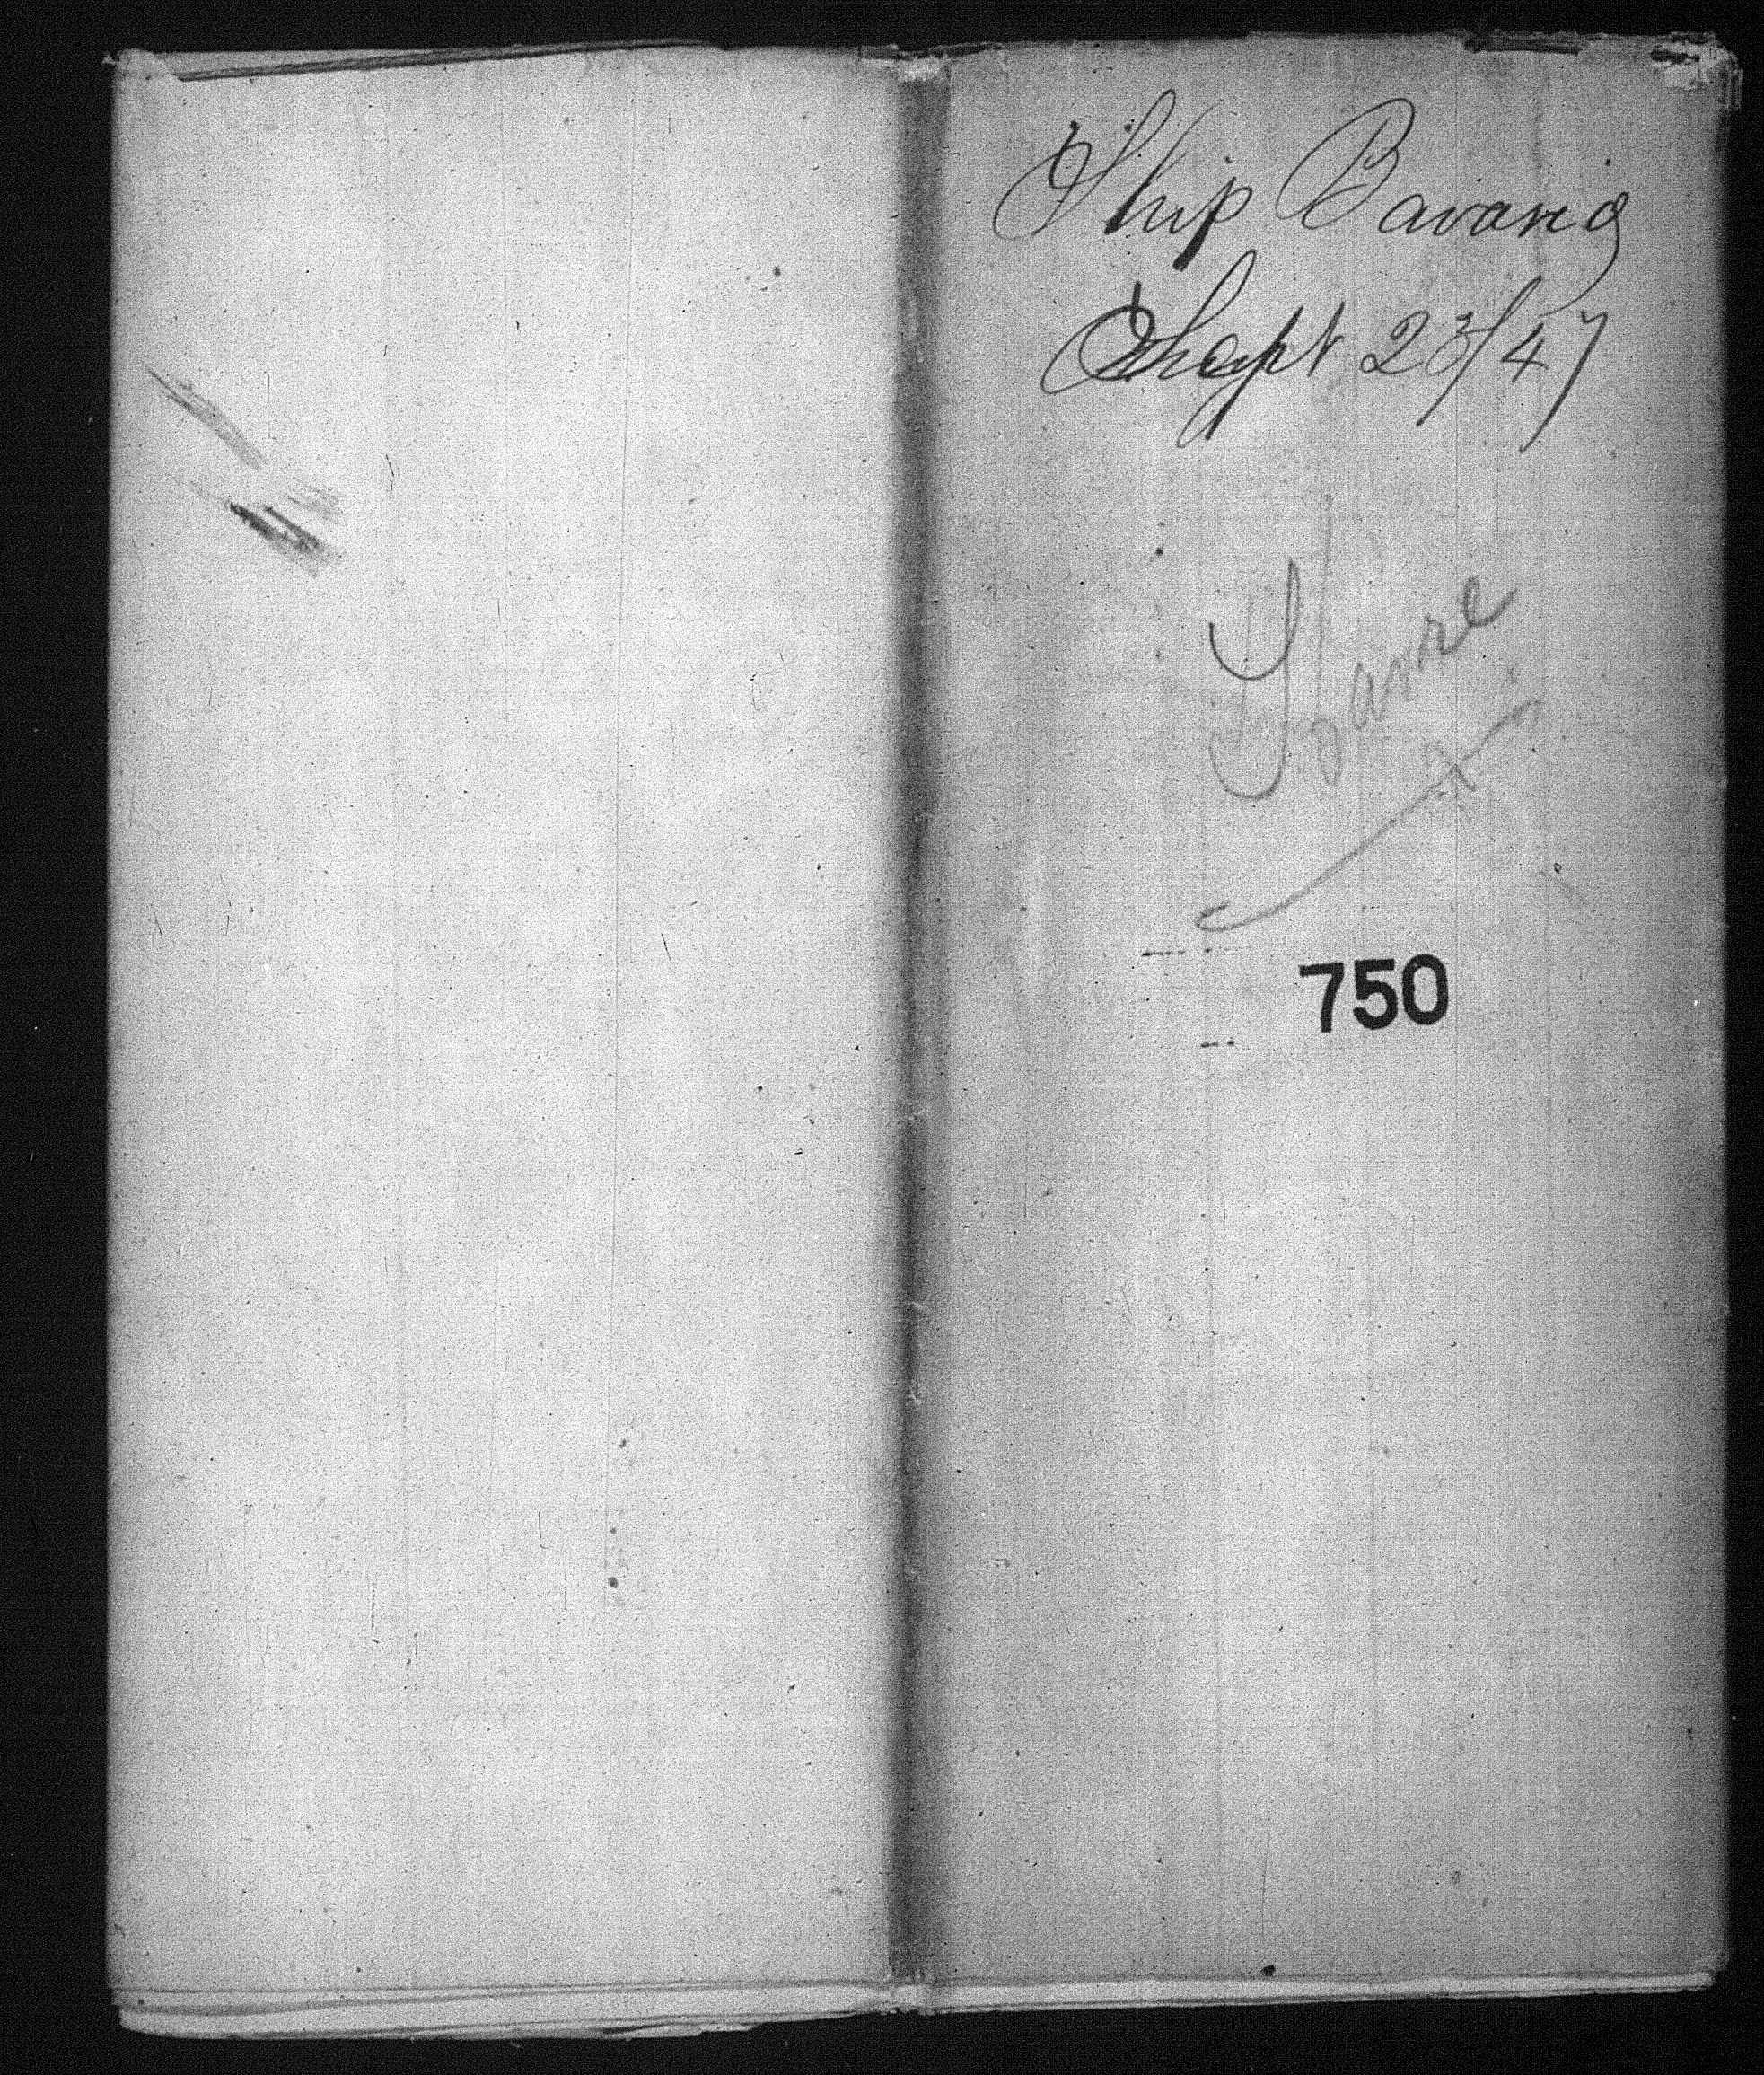 Ship Bavaria
Sept 23/47
Havre
750